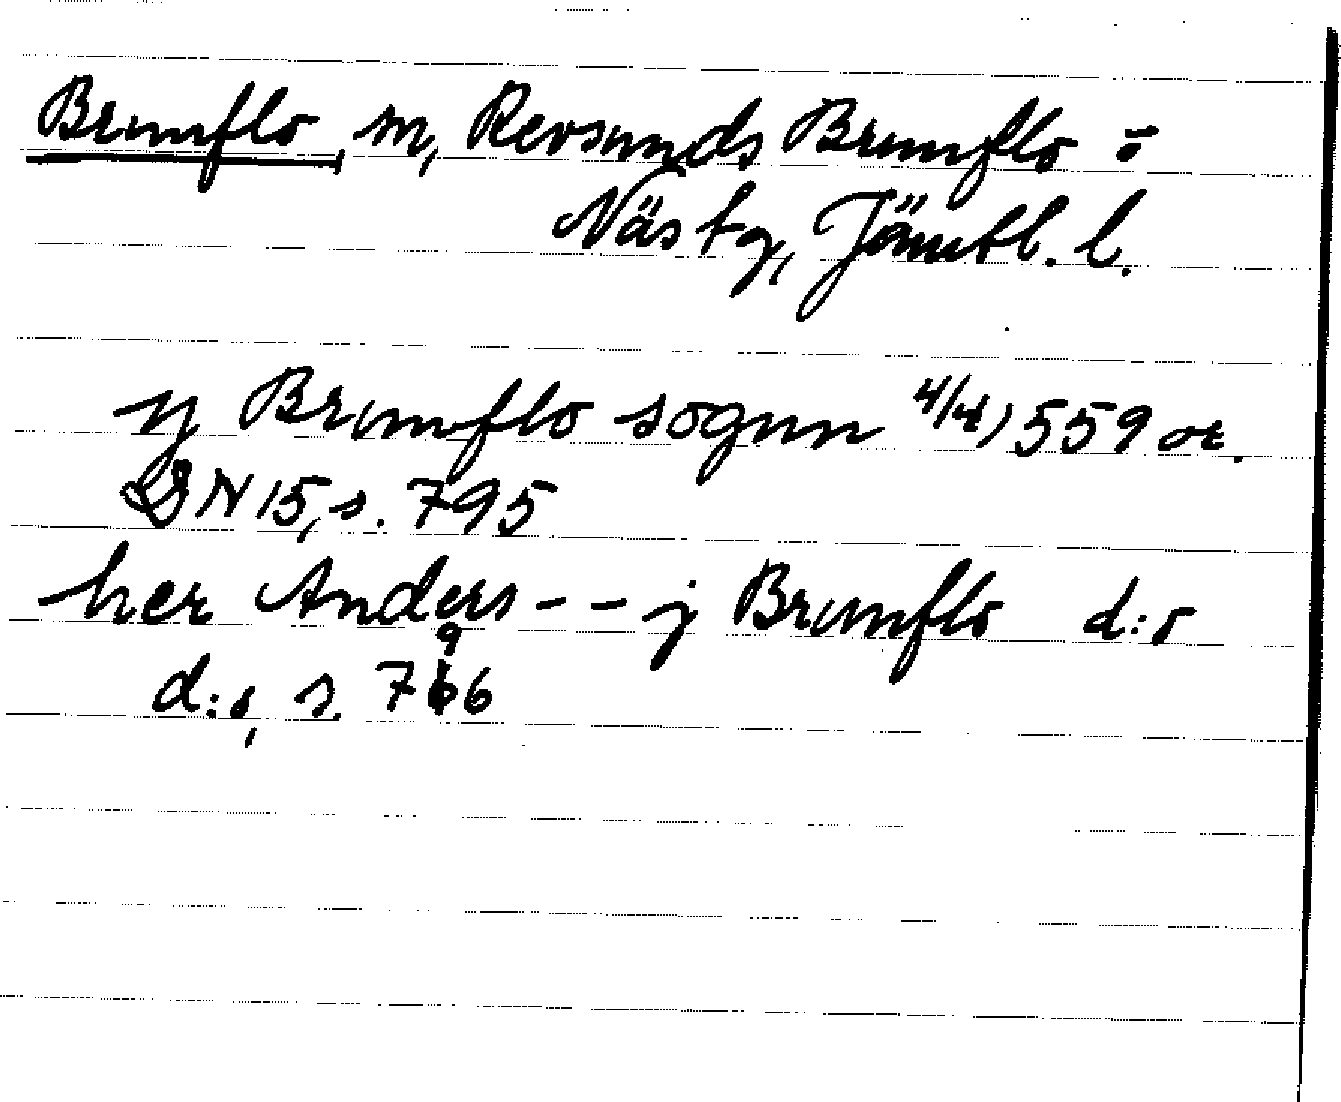 Brunflo, sn, Revsunds Brunflo o
Näs tg, Jämtl. l.
y Brunflo sognn 4/4 1559 or.
DN 15, s. 795
her Anders -- j Brunflo d:o
d:o, s. 796